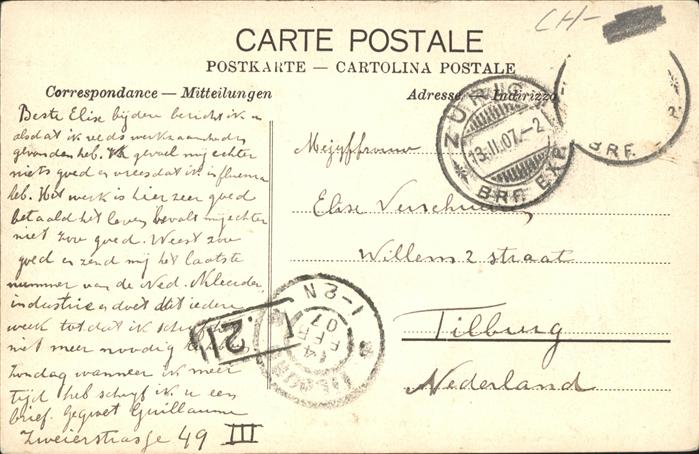 CH-
CARTE POSTALE
POSTKARTE — CARTOLINA POSTALE
Correspondance — Mitteilungen
Adresse Indirizzo
Beste Elise bijdeze bericht ik u
alsdat ik reeds werkzaamheden
gevonden heb. Ik gevoel mij echter
niets goed en vrees dat ik influenza
heb. Het werk is hier zeer goed
betaald het leven bevalt mij echter
niet zoo goed. Weest zoo
goed en zend mij het laatste
nummer van de Ned. Kleeder
industrie en doet dit iedere
week tot dat ik
niet meer noodig
Zondag wanneer ik meer
tijd heb schrijf ik u een
brief. gegroet Guillaume
Zweierstrasse 49 III
Mejuffrouw
Elise
Willem 2 straat
Tilburg
Nederland
ZÜRICH
13.II.07.-2
BRF. EXP.
BRF.
1-2N
14
FEB
07
21